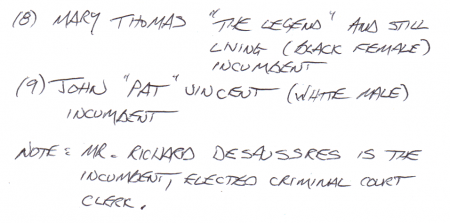 (8) MARY THOMAS "THE LEGEND" AND STILL
LIVING (BLACK FEMALE)
INCUMBENT
(9) JOHN "PAT" VINCENT (WHITE MALE)
INCUMBENT
NOTE: MR. RICHARD DESAUSSRES IS THE
INCUMBENT, ELECTED CRIMINAL COURT
CLERK.